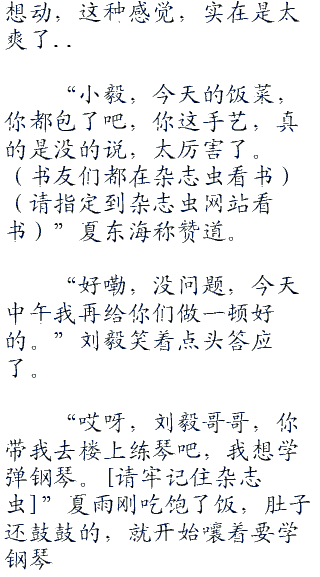 想动，这种感觉，实在是太
爽了..
“小毅，今天的饭菜，
你都包了吧，你这手艺，真
的是没的说，太厉害了。
（书友们都在杂志虫看书）
（请指定到杂志虫网站看
书）”夏东海称赞道。
“好嘞，没问题，今天
中午我再给你们做一顿好
的。”刘毅笑着点头答应
了。
“哎呀，刘毅哥哥，你
带我去楼上练琴吧，我想学
弹钢琴。[请牢记住杂志
虫]”夏雨刚吃饱了饭，肚子
还鼓鼓的，就开始嚷着要学
钢琴